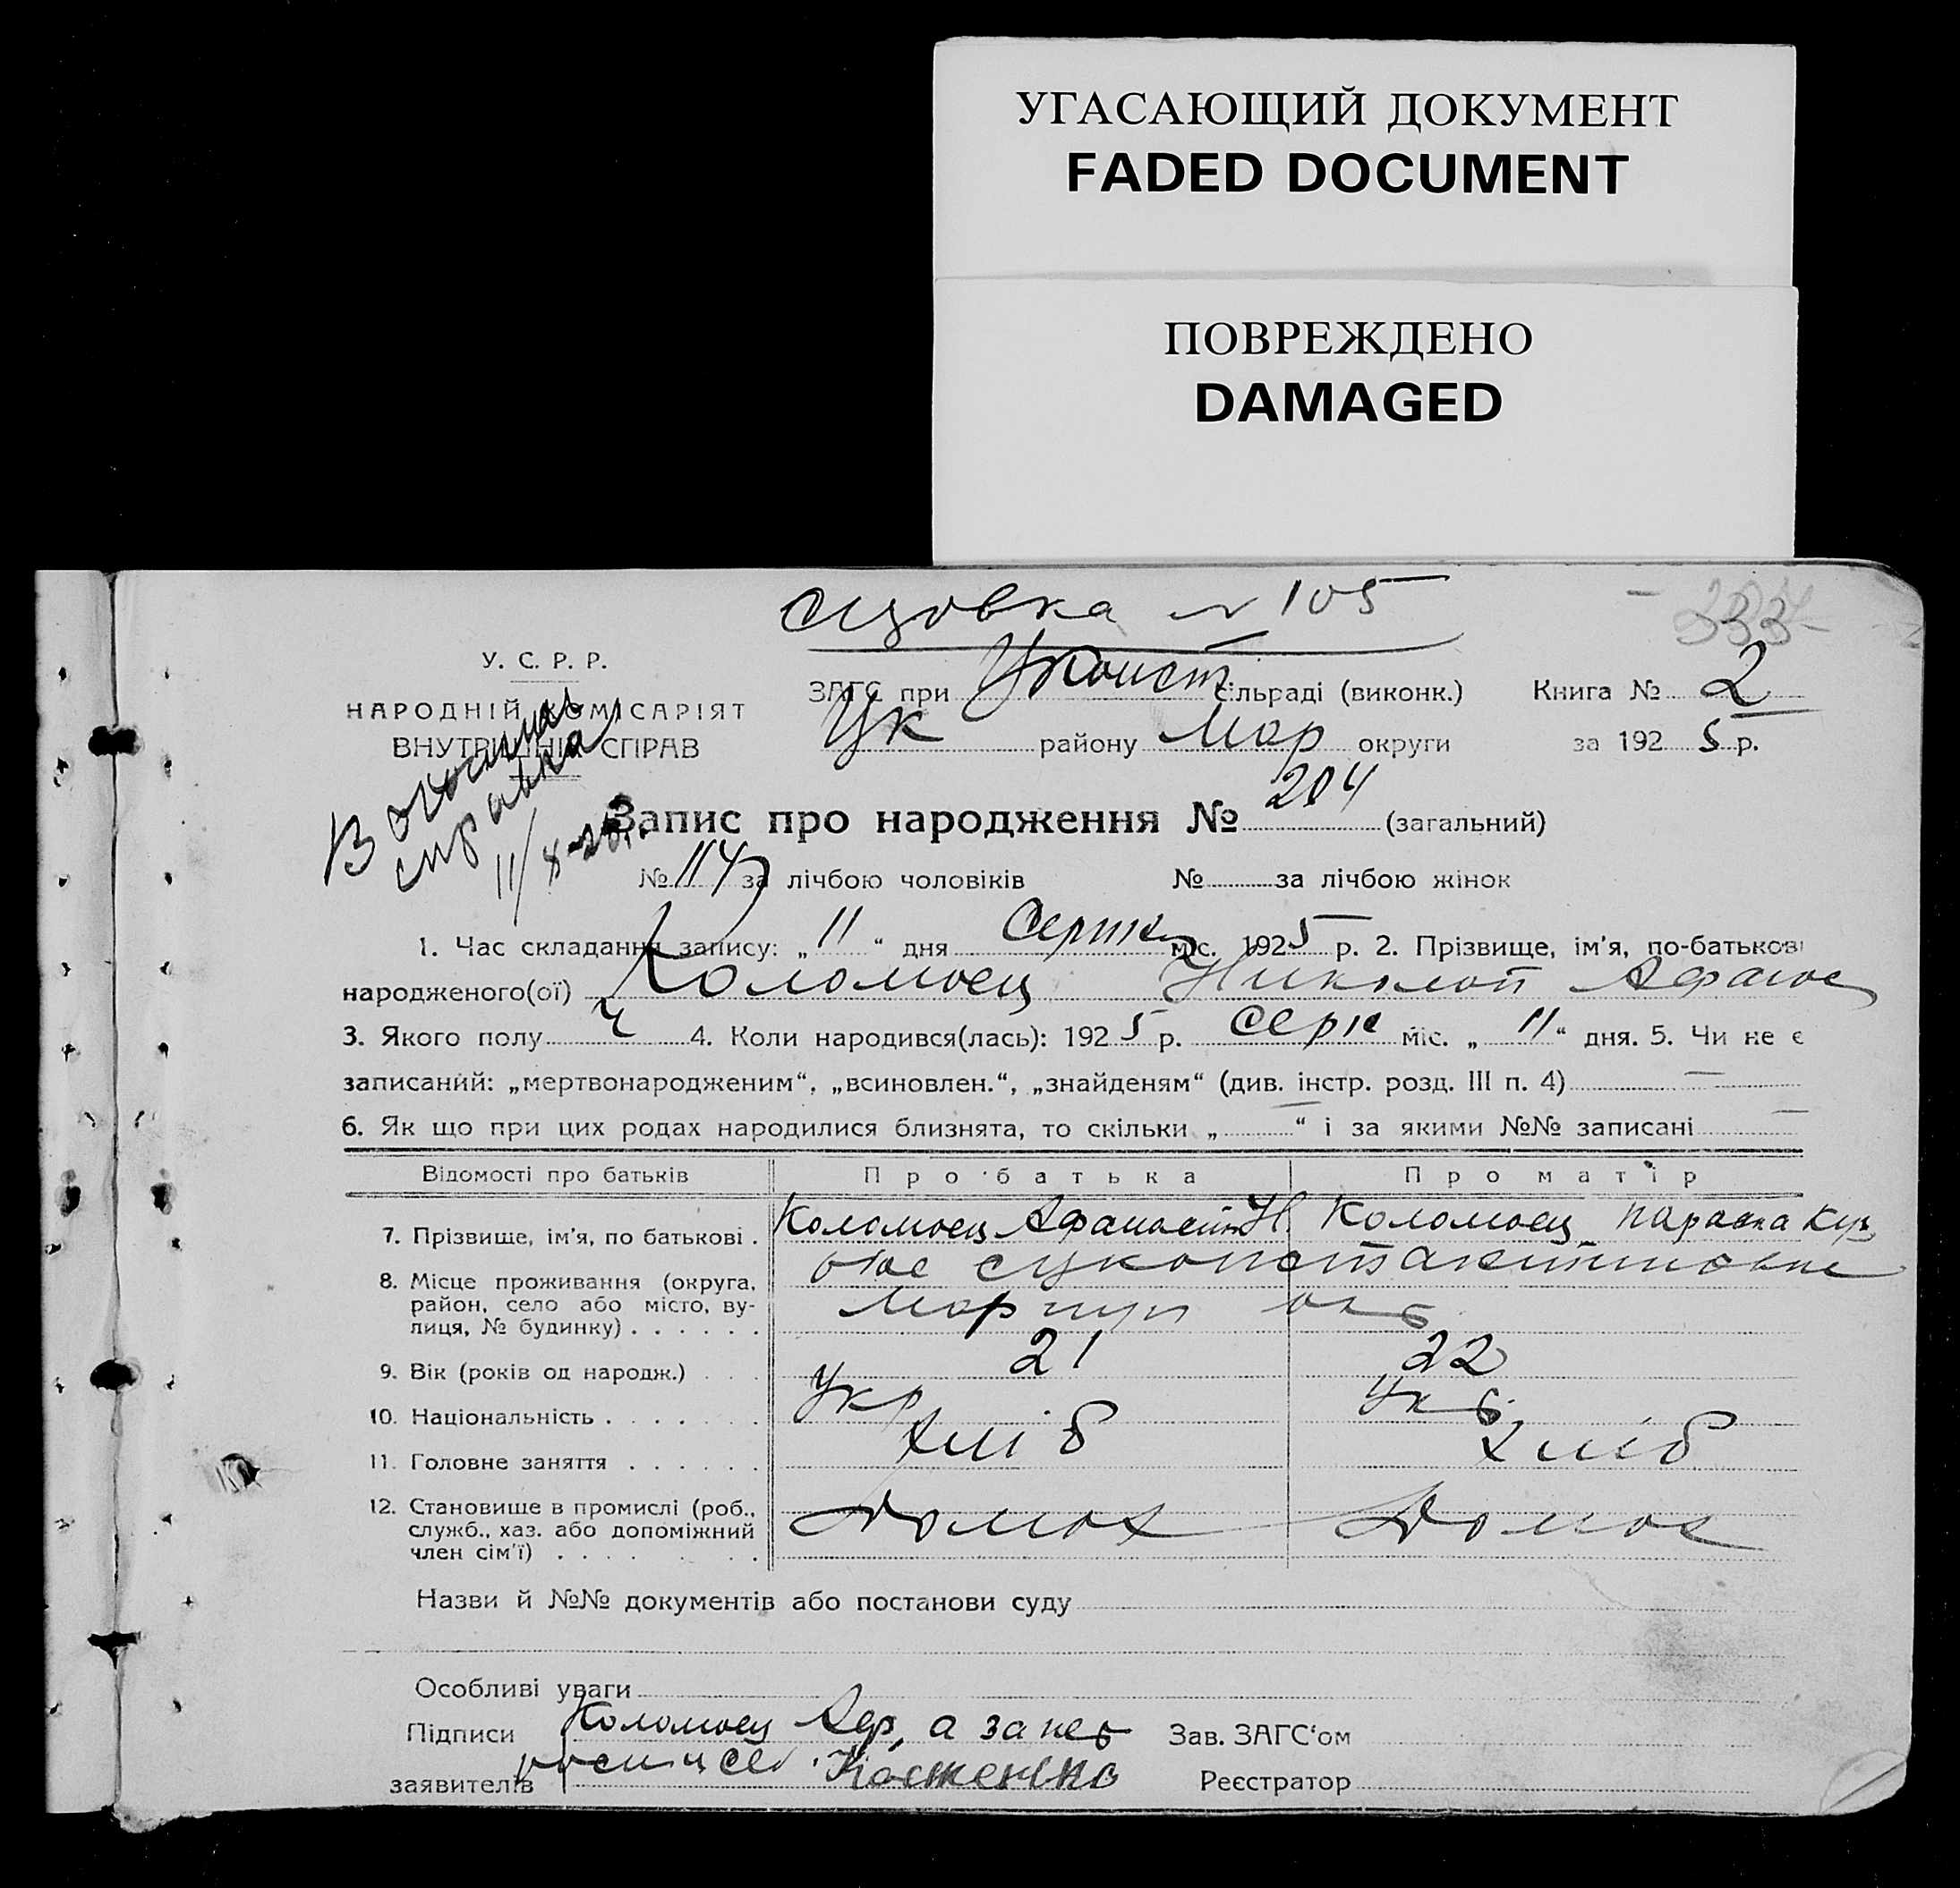 УГАСАЮЩИЙ ДОКУМЕНТ
FADED DOCUMENT
ПОВРЕЖДЕНО
DAMAGED
№ 105
У. С. Р. Р.
НАРОДНІЙ КОМІСАРІЯТ
ВНУТРІШНІХ СПРАВ
справка
11/8-25
ЗАГС при Уконст сільраді (виконк.) Книга № 2
Цк району Мар округи за 1925 р.
Запис про народження № 204 (загальний)
№ 114 за лічбою чоловіків № за лічбою жінок
1. Час складання запису: „11“ дня Серпня міс. 1925 р. 2. Прізвище, ім'я, по-батькові
народженого(ої) Коломоец Николай Афанас
3. Якого полу ч 4. Коли народився(лась): 1925 р. серп міс. „11“ дня. 5. Чи не є
записаний: „мертвонародженим“, „всиновлен.“, „знайденям“ (див. інстр. розд. III п. 4) —
6. Як що при цих родах народилися близнята, то скільки „—“ і за якими №№ записані —
Відомості про батьків Про батька Про матір
7. Прізвище, ім'я, по батькові . Коломоец Афанасий Н. Коломоец Параска Куз
8. Місце проживання (округа, район, село або місто, вулиця, № будинку) . . . . . .
Мариуп окр
9. Вік (років од народж.) . . . 21 22
10. Національність . . . . . . . Укр Укр
11. Головне заняття . . . . . . хліб хліб
12. Становище в промислі (роб., служб., хаз. або допоміжний член сім'ї) . . . . . . Домох Домох
Назви й №№ документів або постанови суду
Особливі уваги
Підписи Коломоец Аф, а за нег Зав. ЗАГС'ом
заявителів Реєстратор